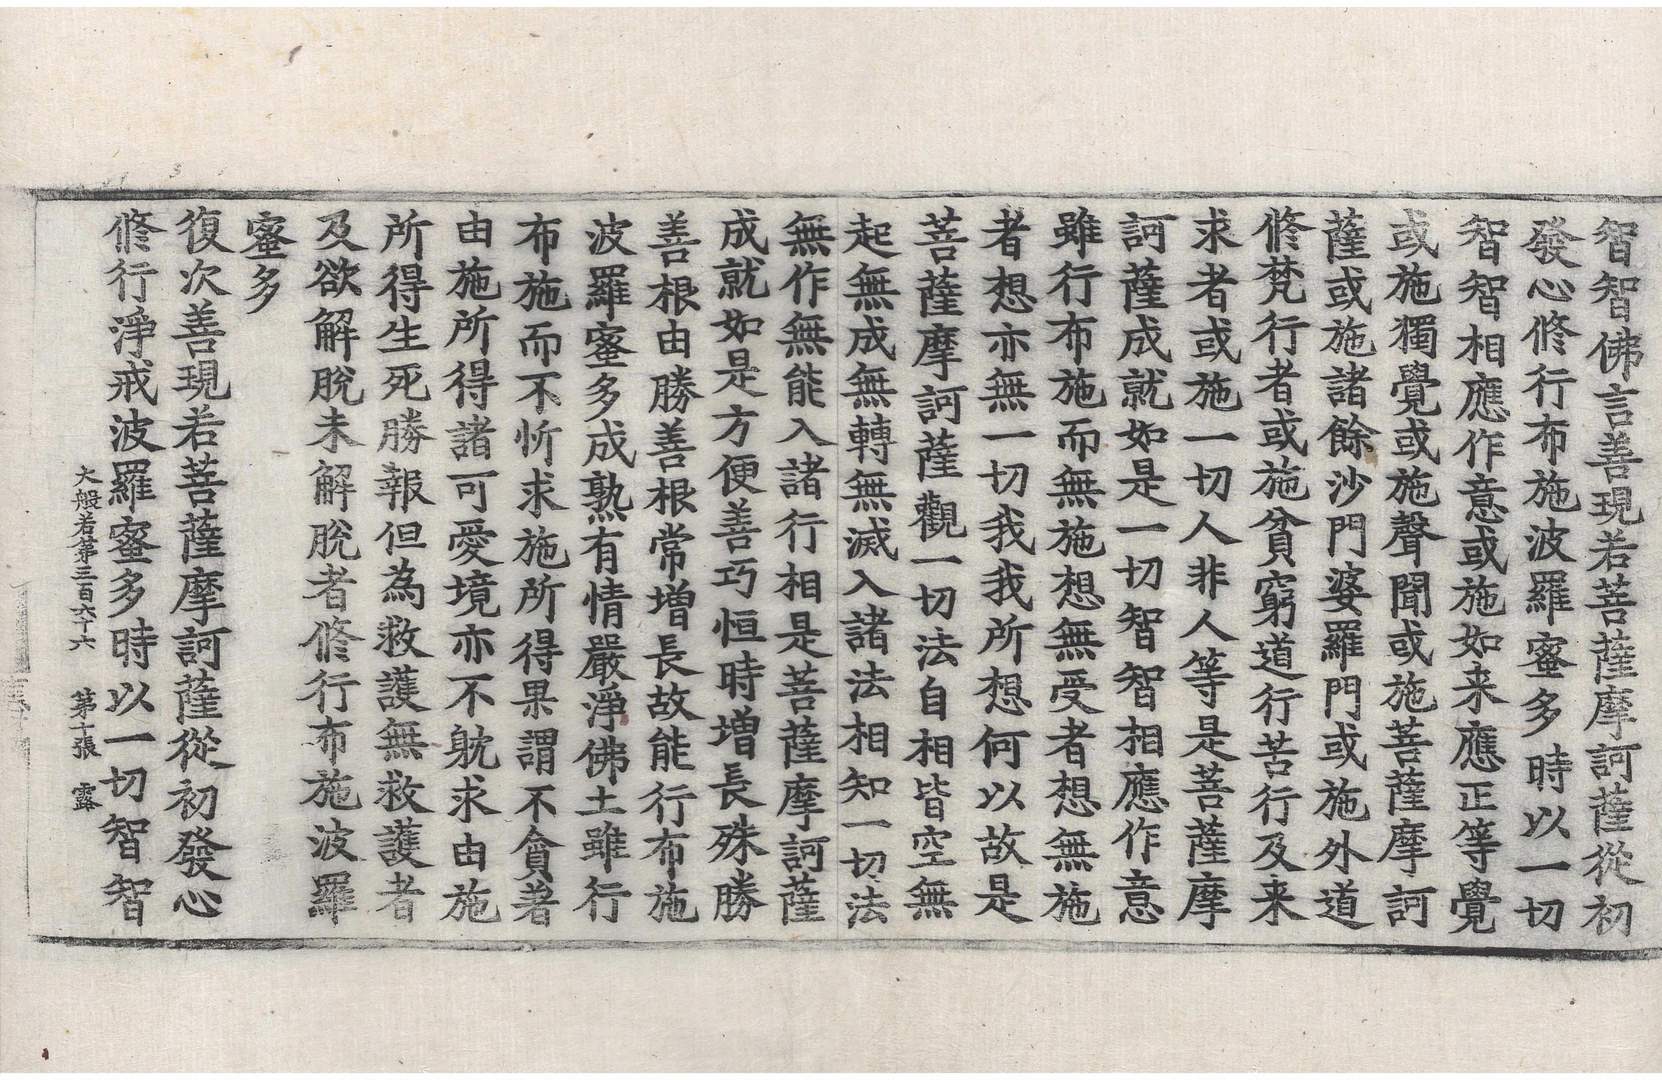 智智佛言善現若菩薩摩訶薩從初
發心修行布施波羅蜜多時以一切
智智相應作意或施如来應正等覺
或施獨覺或施聲聞或施菩薩摩訶
薩或施諸餘沙門婆羅門或施外道
修梵行者或施貧窮道行苦行及来
求者或施一切人非人等是菩薩摩
訶薩成就如是一切智智相應作意
雖行布施而無施想無受者想無施
者想亦無一切我我所想何以故是
菩薩摩訶薩觀一切法自相皆空無
起無成無轉無滅入諸法相知一切法
無作無能入諸行相是菩薩摩訶薩
成就如是方便善巧恒時增長殊勝
善根由勝善根常增長故能行布施
波羅蜜多成熟有情嚴淨佛土雖行
布施而不忻求施所得果謂不貪著
由施所得諸可愛境亦不躭求由施
所得生死勝報但為救護無救護者
及欲解脫未解脫者修行布施波羅
蜜多
復次善現若菩薩摩訶薩從初發心
修行淨戒波羅蜜多時以一切智智
大般若第三百六十六 第十張 露